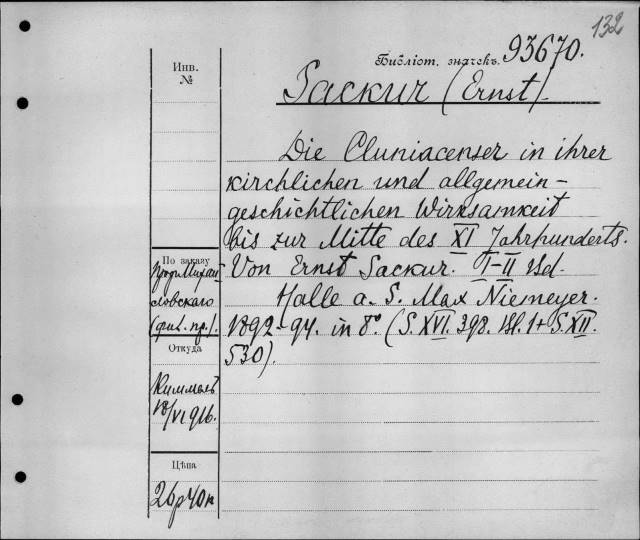 132
Библіот. значекъ. 93670.
Инв.
№
Sackur (Ernst).
Die Cluniacenser in ihrer
kirchlichen und allgemein-
geschichtlichen Wirksamkeit
bis zur Mitte des XI Jahrhunderts.
Von Ernst Sackur. I-II Bd.
Halle a. S. Max Niemeyer.
1892-94. in 8° (S. XVI. 398. Bl. 1 + S. XII.
530).
По заказу
проф. Михай
ловскаго
Откуда
Киммель
18/VI 916.
Цѣна
26р40к